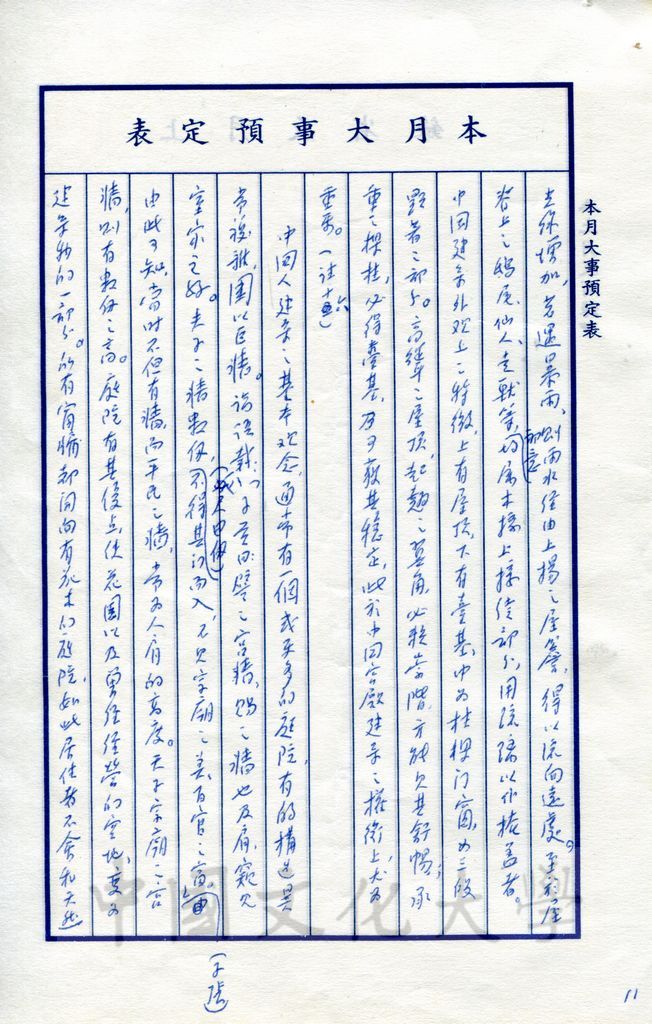 本月大事預定表
本月大事預定表
去線增加,若遇暴雨,則雨水經由上揚之屋簷,得以流向遠處。至於屋
脊上之鴟尾、仙人、走獸等,均屬木樑上接縫部分,用琉璃以作掩蓋者。
中國建築外观上之特徵,上有屋頂,下有臺基,中為柱樑门窗,为三段
顯著之部分。高聳之屋頂,起翹之翼角,必賴崇階方能见其舒暢;承
重之樑柱,必得臺基,乃可获其穩定,此於中国宮殿建築之權衡上尤为
重要。(註十六)
中国人建築之基本观念,通常有一個或更多的庭院,有的構造異
常複雜,圍以巨牆。論語載:「子貢曰:譬之宮牆,賜之牆也及肩,窺见
室家之好。夫子之牆數仞,不得其门而入,不见宗廟之美,百官之富
由此可知,當时不但有牆,而平民之牆,常为人肩的高度。天子宗廟之宮
牆,则有數仞之高。庭院有其優点,使花園以及曾经经營的空地,變为
建築物的一部分。所有窗牖都開向有花木的庭院,如此居住者不會和大自
(子張)
中國文化大學
11